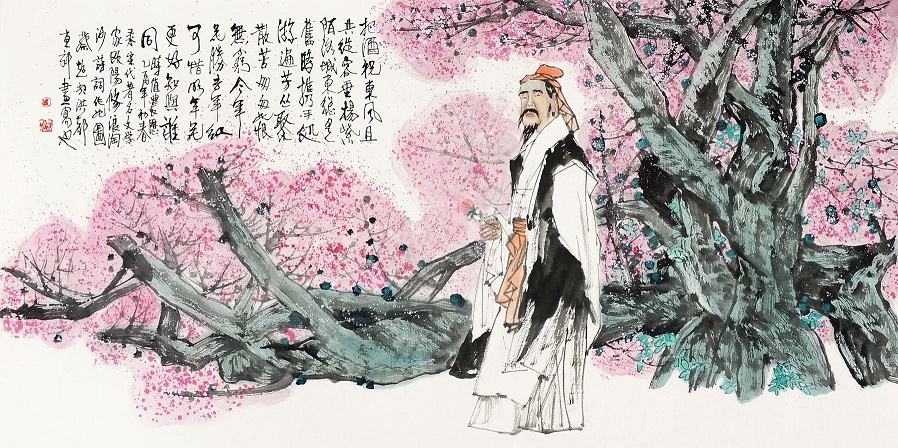 把酒祝東風且
共從容垂楊紫
陌洛城東總是
舊時攜手處
游遍芳丛聚
散苦匆匆此恨
無窮今年
花勝去年紅
可惜明年花
更好知與誰
同
宋代著名文学
家歐陽修浪淘
沙詩詞作此圖